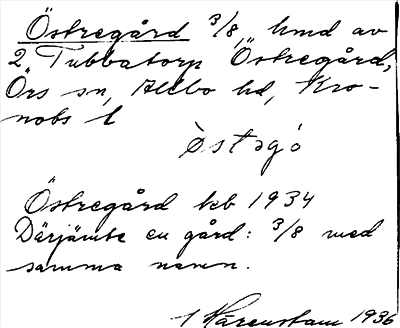 Östregård 3/8, hmd av
2 Tubbatorp Östregård,
Örs sn, Allbo hd, Kro-
nobs l
òstəgó
Östregård kb 1934
Därjämte en gård: 3/8 med
samma namn.
1936